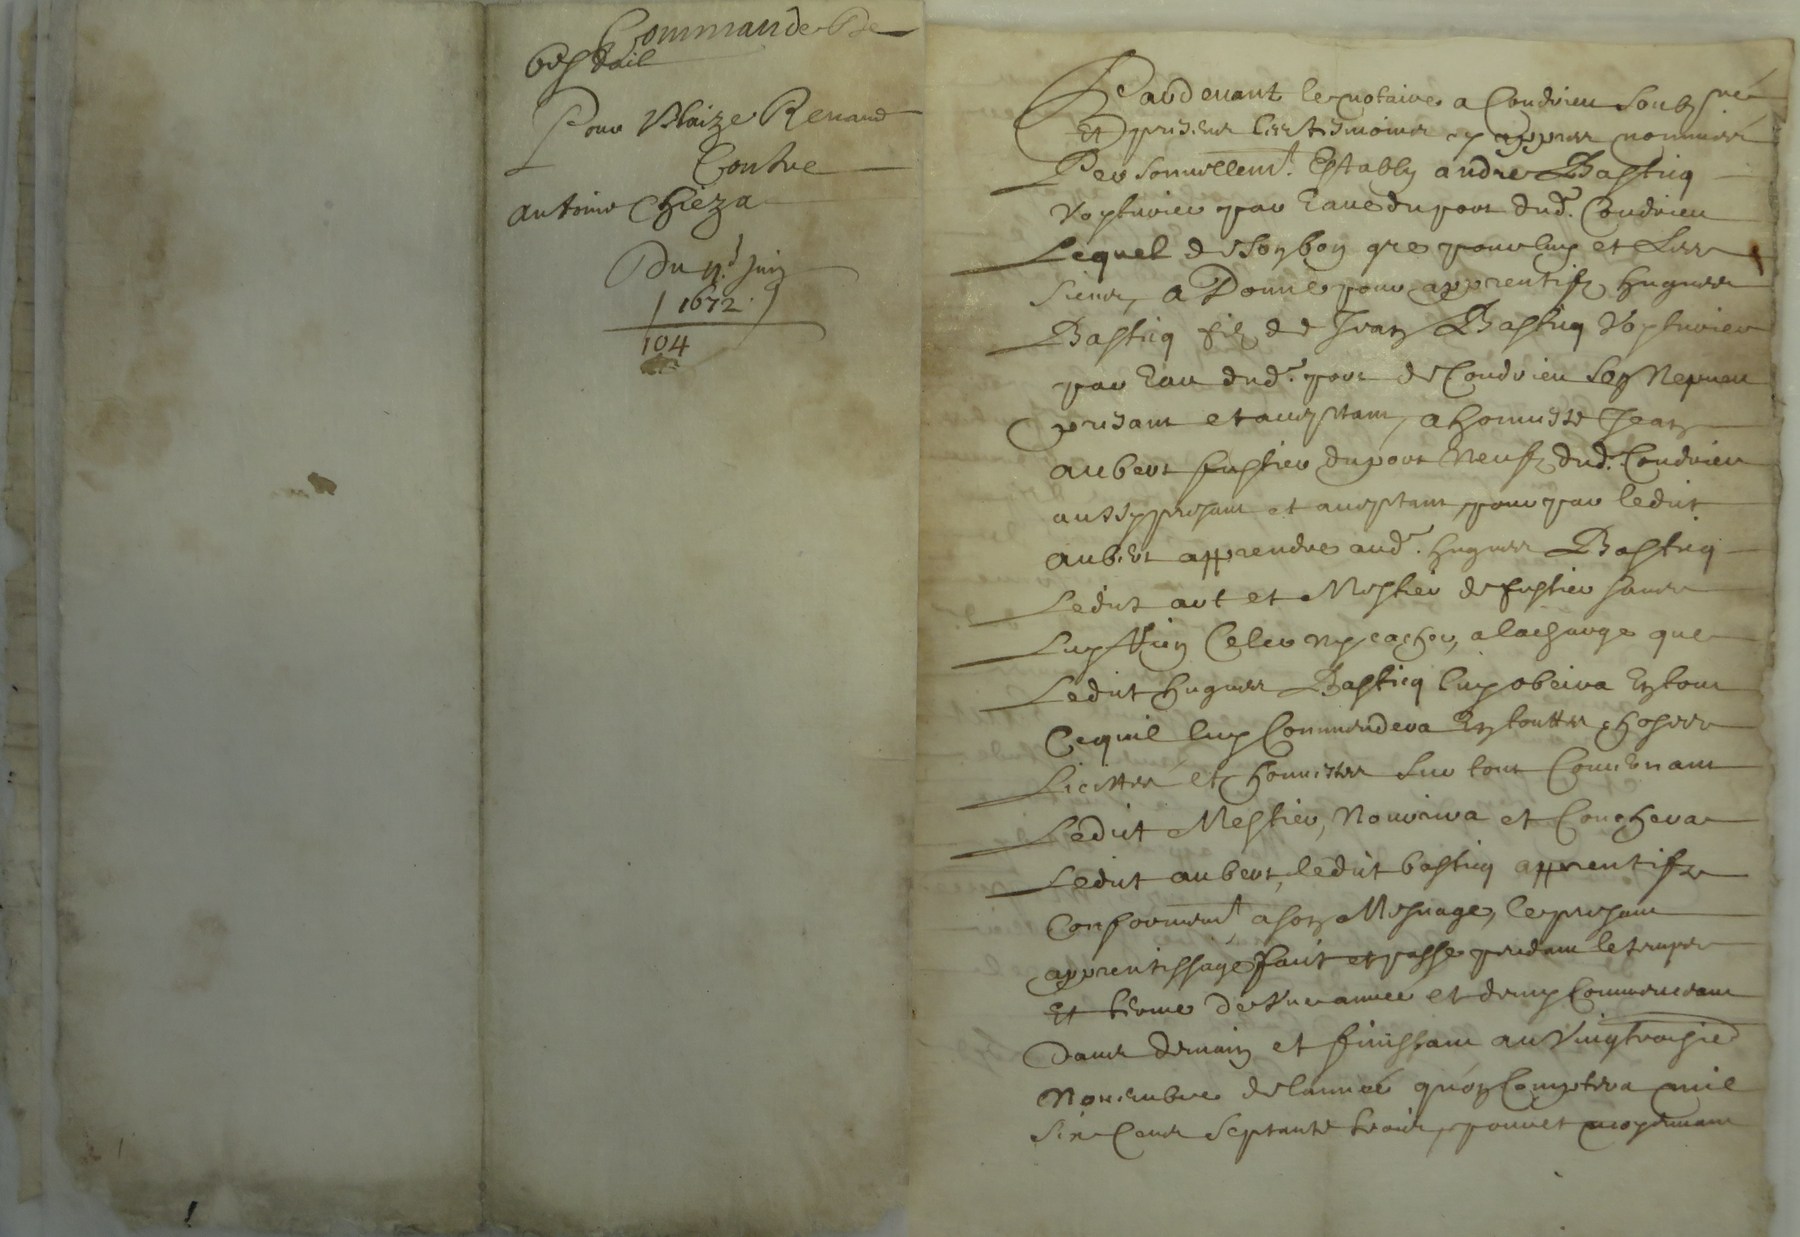 Commande De
bestail
Pour Blaize Renaud
Contre
antoine Chieza
Du 11.e Juin
1672
104
Pardevant le notaire a Condrieu soubzsigné
Et presens les tesmoins y appres nommés
Personnellem.t Estably andre Basticq
Voyturier par Eaue du port dud.t Condrieu
Lequel de son bon gre pour luy et Les
siens, a Donné pour apprentifz hugues
Basticq filz de Jean Basticq Voyturier
par Eau dud.t port de Condrieu son Nepveu
presant et acceptant, a honneste Jean
aubert fustier du port Neufz dud.t Condrieu
aussy presant et acceptant, pour par ledit
aubert apprendre aud.t hugues Basticq
Ledit art et Mestier de fustier sans
Luy Rien Celer ny cacher, a la charge que
Ledit hugues Basticq luy obeira En tout
Ce quil luy Commendera En touttes choses
Licittes et honnestes sur tout Concernant
Ledit Mestier, Nourrira et Couchera
Ledit aubert, ledit basticq apprentifz
Conformem.t a son Mesnage, le presant
apprentissage fait et passé pendant le temps
Et terme De Une année et demy Commencant
Dans demain et finissant au Vingtroisie
Novembre de lannée qu'on Comptera mil
Six Cens septante trois, pour et moyennant